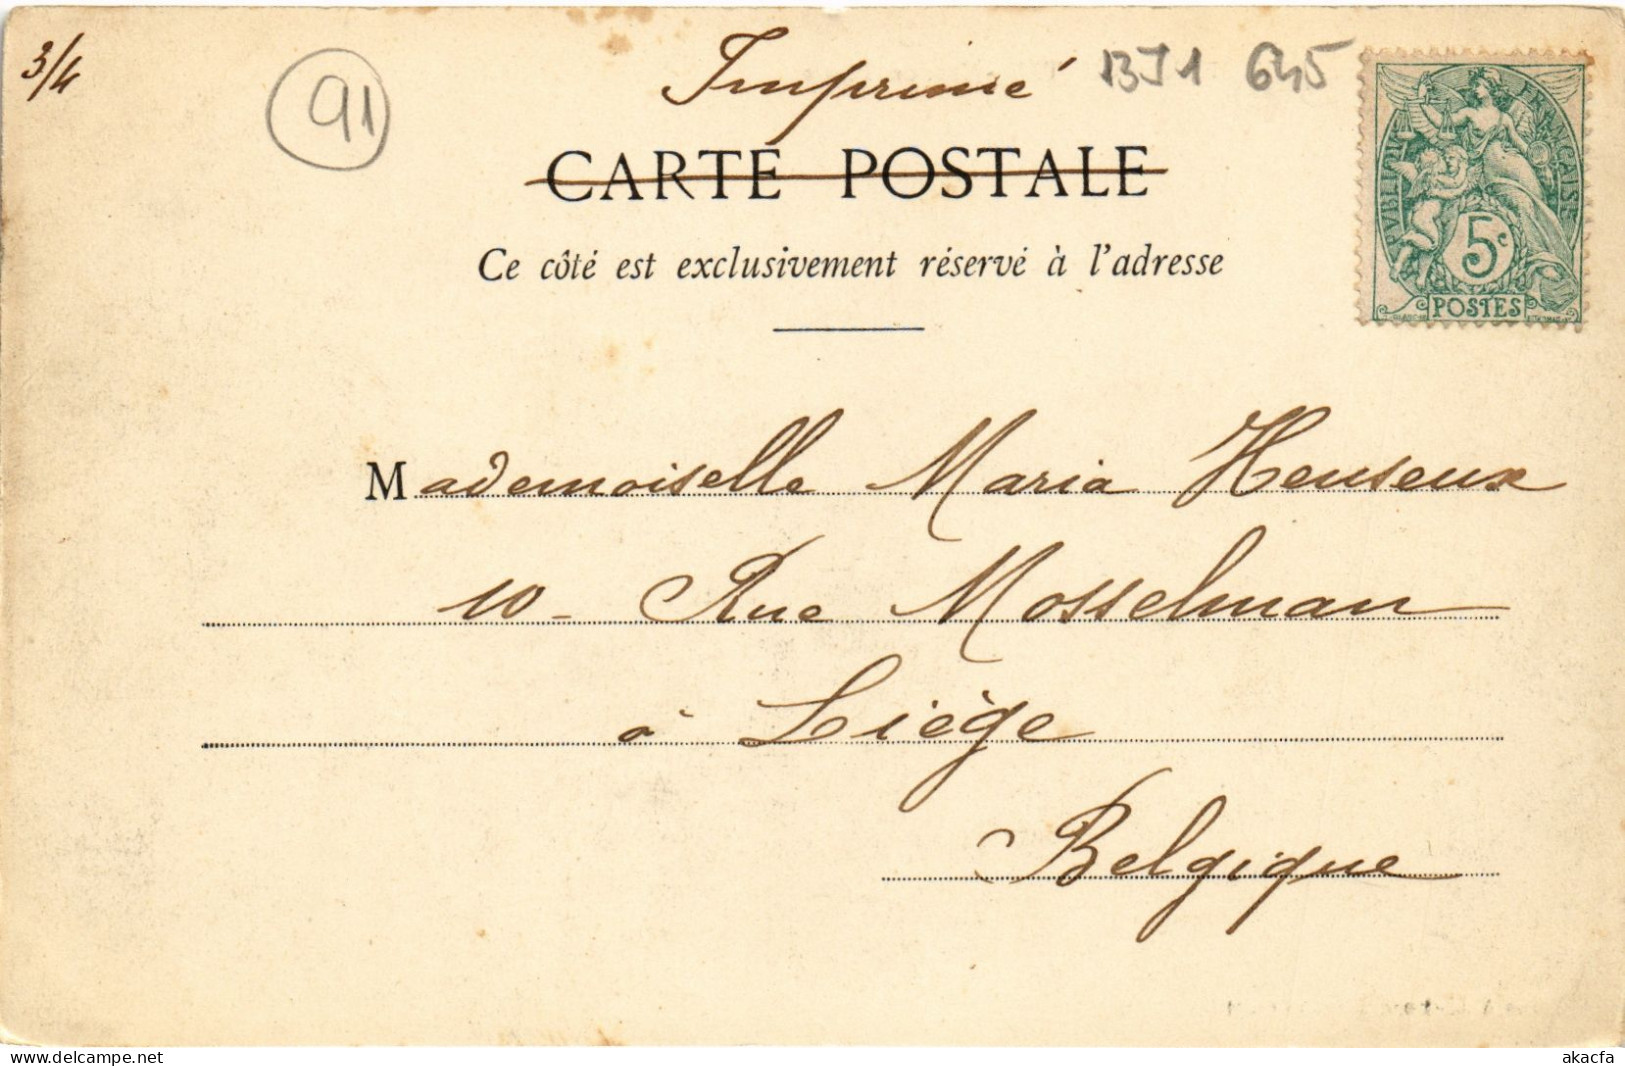 3/4
91
Imprimé
13J1 645
CARTE POSTALE
Ce côté est exclusivement réservé à l'adresse
RÉPUBLIQUE FRANÇAISE
5c
POSTES
Mademoiselle Maria Henseux
10 - Rue Mosselman
à Liège
Belgique
https://www.delcampe.net
akacfa